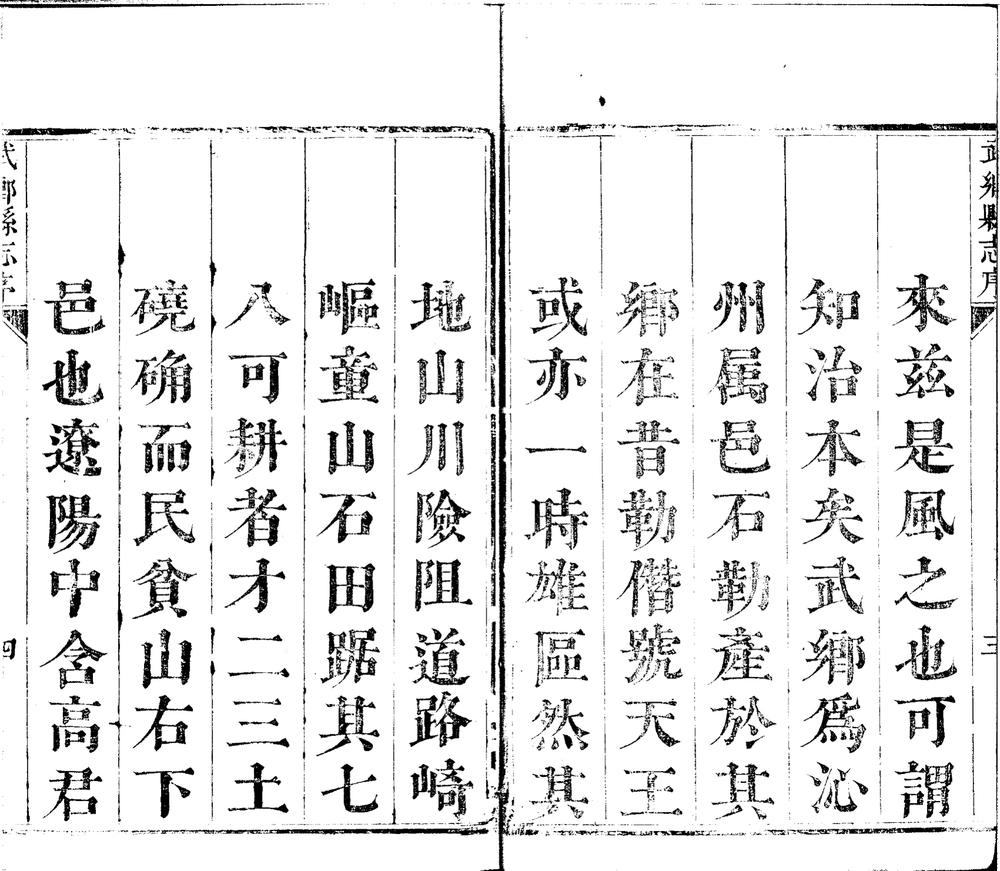 武鄉縣志序
三
來茲是風之也可謂
知治本矣武鄉爲沁
州属邑石勒產於其
鄉在昔勒僭號天王
或亦一時雄區然其
地山川險阻道路崎
嶇童山石田踞其七
八可耕者才二三土
磽确而民貧山右下
邑也遼陽中含高君
武鄉縣志序
四